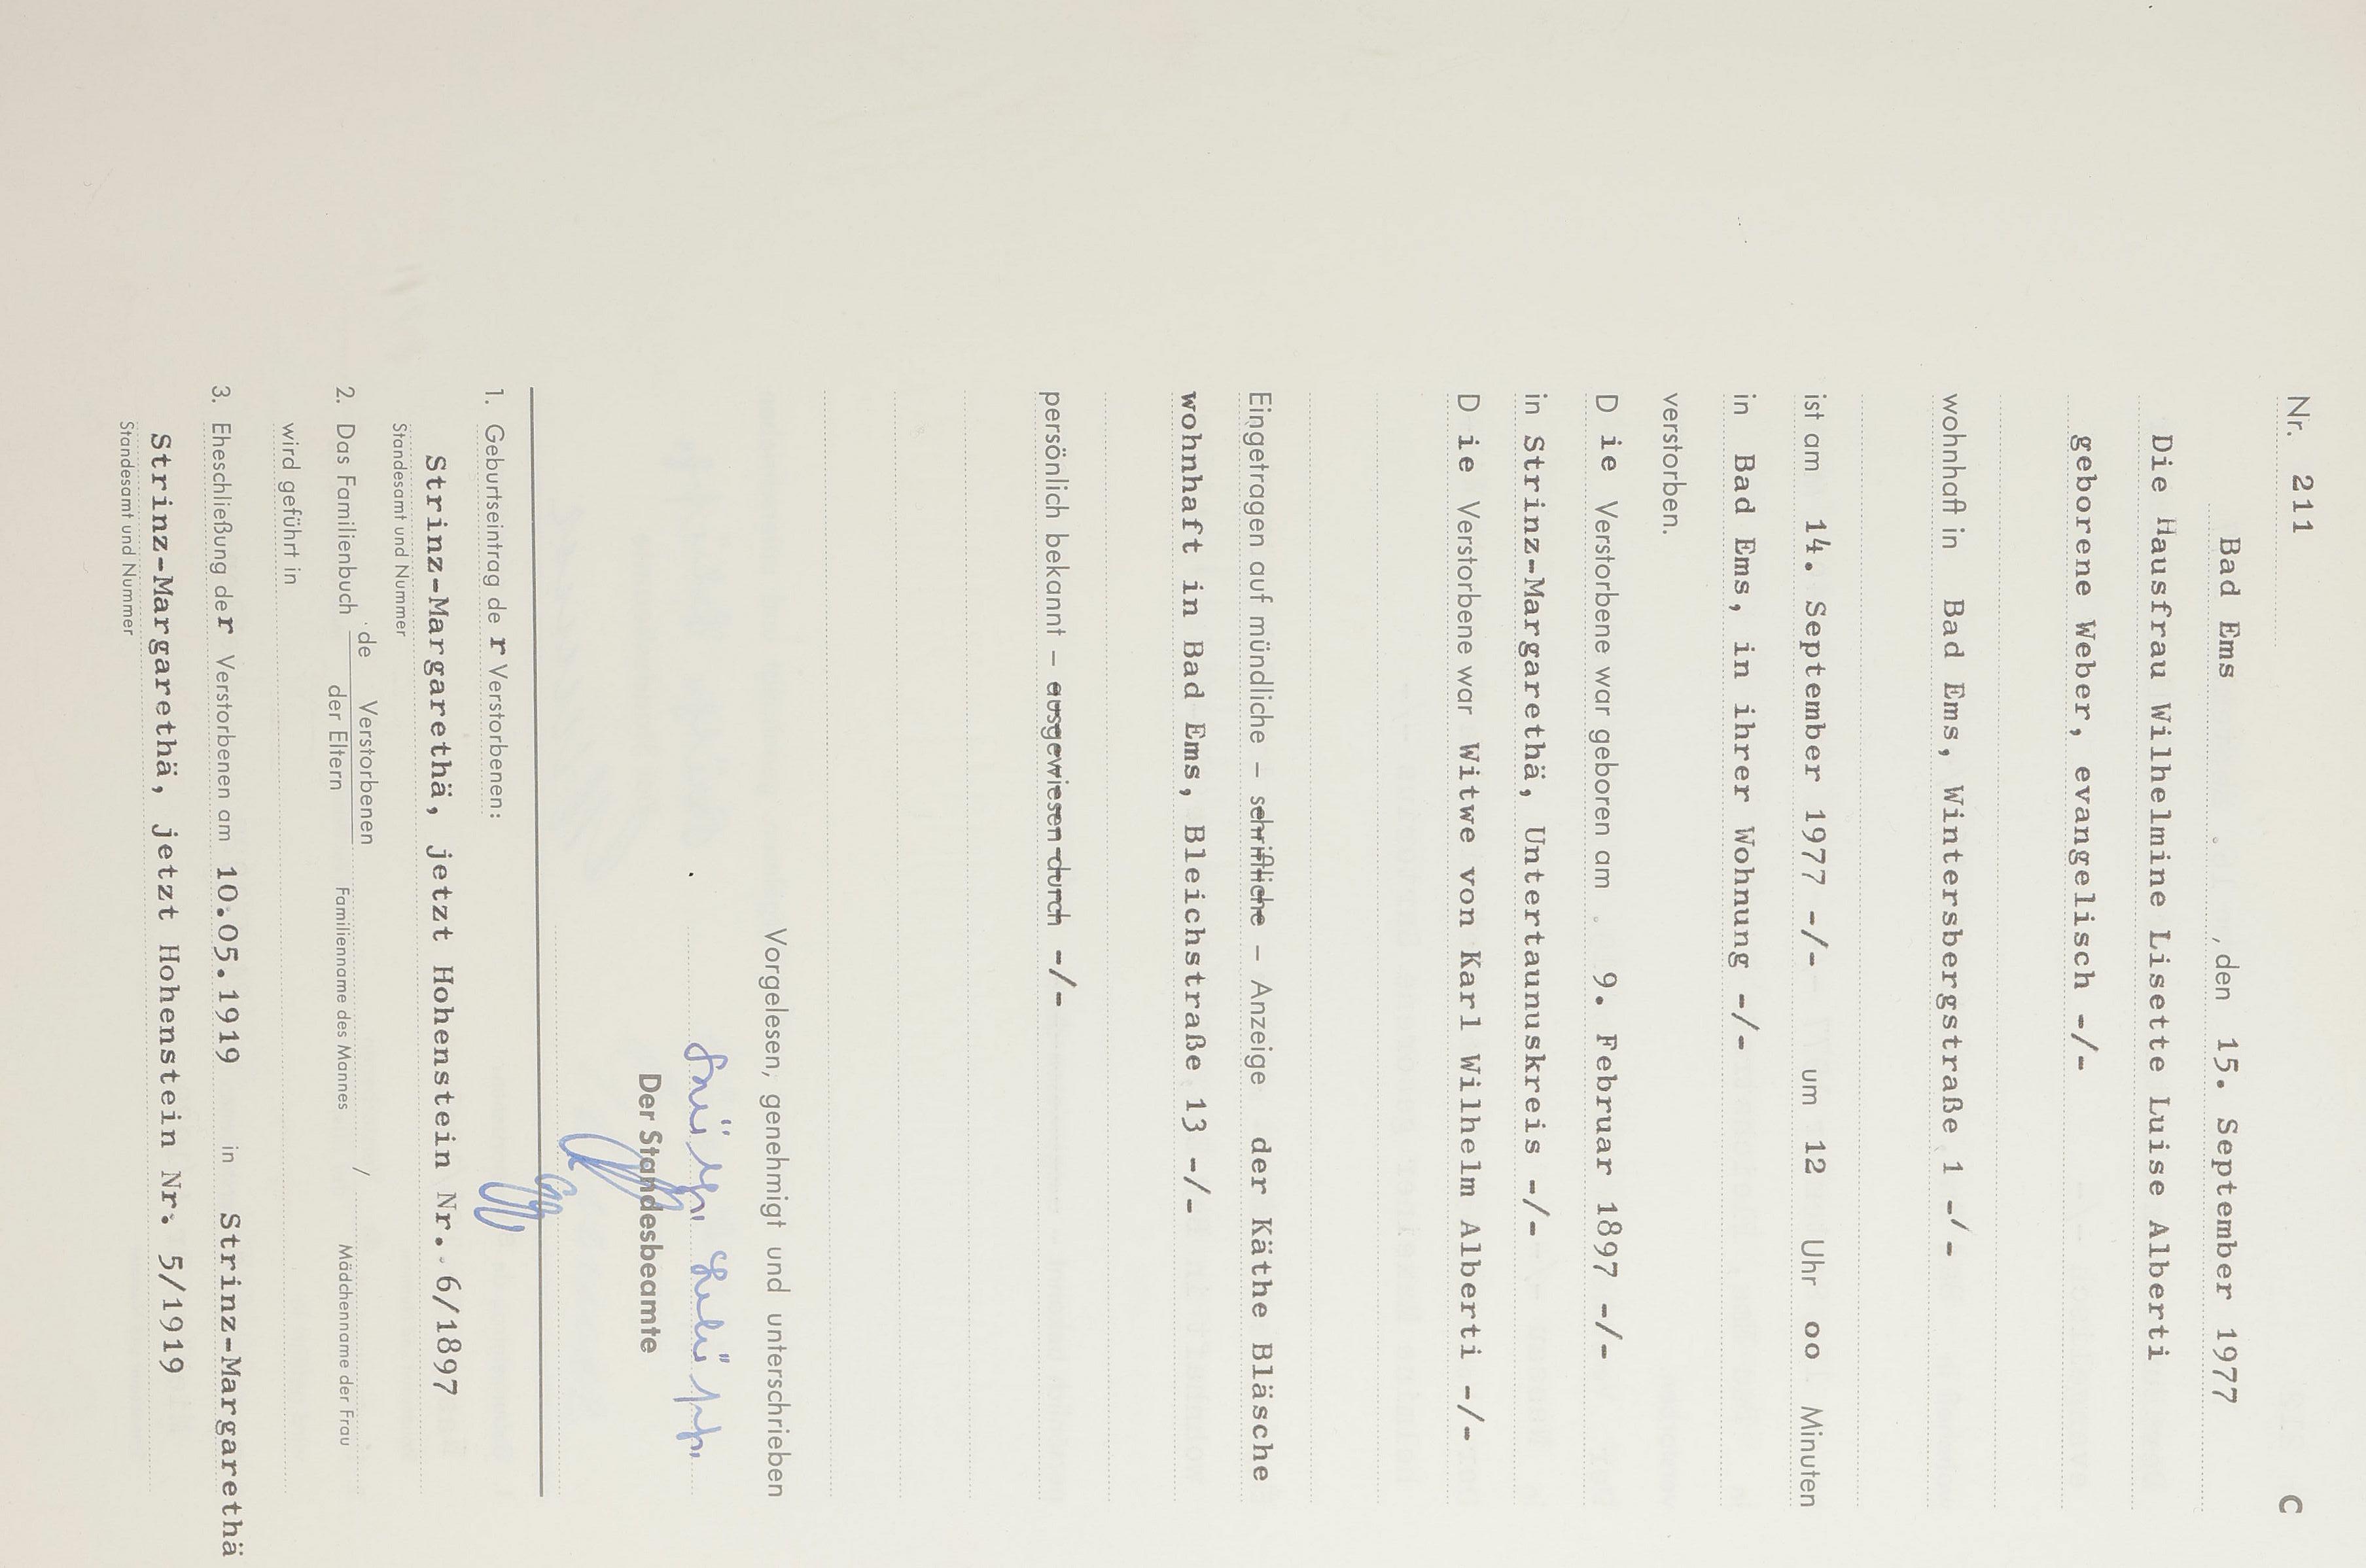 Nr. 211 C
Bad Ems , den 15. September 1977
Die Hausfrau Wilhelmine Lisette Luise Alberti
geborene Weber, evangelisch -/-
wohnhaft in Bad Ems, Wintersbergstraße 1 -/-
ist am 14. September 1977 -/- um 12 Uhr oo Minuten
in Bad Ems, in ihrer Wohnung -/-
verstorben.
D ie Verstorbene war geboren am 9. Februar 1897 -/-
in Strinz-Margarethä, Untertaunuskreis -/-
D ie Verstorbene war Witwe von Karl Wilhelm Alberti -/-
Eingetragen auf mündliche – schriftliche – Anzeige der Käthe Bläsche
wohnhaft in Bad Ems, Bleichstraße 13 -/-
persönlich bekannt – ausgewiesen durch -/-
Vorgelesen, genehmigt und unterschrieben
Der Standesbeamte
1. Geburtseintrag de r Verstorbenen:
Strinz-Margarethä, jetzt Hohenstein Nr. 6/1897
Standesamt und Nummer
2. Das Familienbuch de Verstorbenen
der Eltern
Familienname des Mannes / Mädchenname der Frau
wird geführt in
3. Eheschließung de r Verstorbenen am 10.05.1919 in Strinz-Margarethä
Strinz-Margarethä, jetzt Hohenstein Nr. 5/1919
Standesamt und Nummer